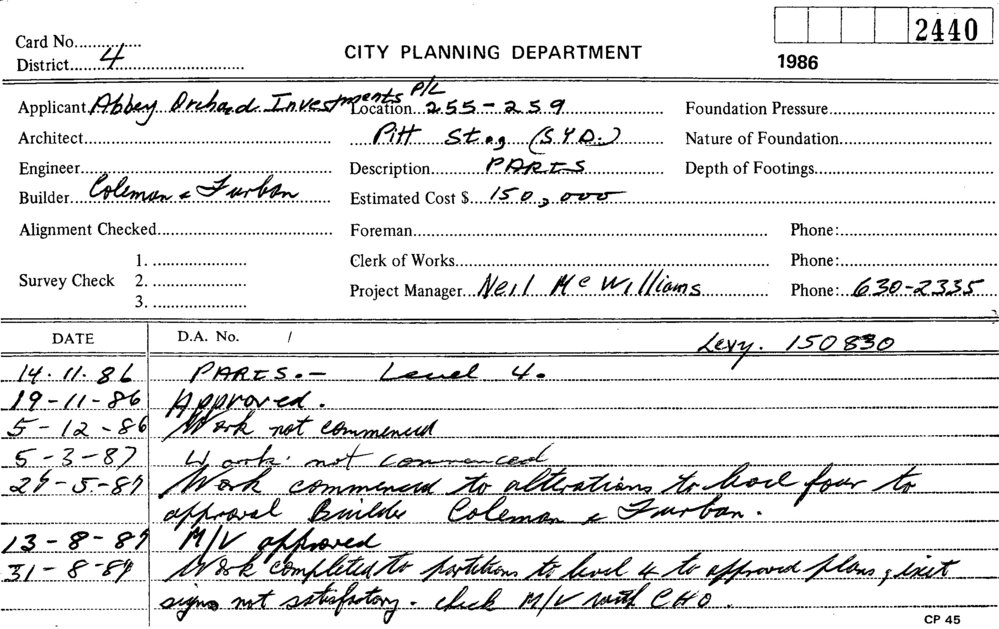 2440
Card No...............
CITY PLANNING DEPARTMENT
District.....4
1986
Applicant Abbey Orchard Investments P/L Location 255-259 Foundation Pressure
Architect Pitt St., (SYD.) Nature of Foundation
Engineer Description PARTS Depth of Footings
Builder Coleman & Furban Estimated Cost $ 150,000
Alignment Checked Foreman Phone:
1. Clerk of Works Phone:
Survey Check 2. Project Manager Neil McWilliams Phone: 630-2335
3.
DATE D.A. No. / Levy. 150830
14.11.86 PARTS.- Level 4.
19-11-86 Approved.
5-12-86 Work not commenced
5-3-87 Work not commenced
27-5-87 Work commenced to alterations to level four to
approval Builder Coleman & Furban.
13-8-87 M/V approved
31-8-87 Work completed to partitions to level 4 to approved plans, exit
signs not satisfactory. check M/V with CHO.
CP 45